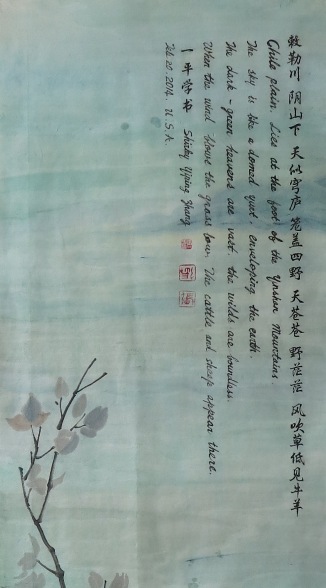 敕勒川 阴山下 天似穹庐 笼盖四野 天苍苍 野茫茫 风吹草低见牛羊
Chile plain. Lies at the foot of the Yinshan Mountains.
The sky is like a domed yurt enveloping the earth.
The dark-green heavens are vast the wilds are boundless.
When the wind blows the grass low, The cattle and sheep appear there.
一平学书 Shirley Yiping Zhang
Feb 20 2014. U.S.A.